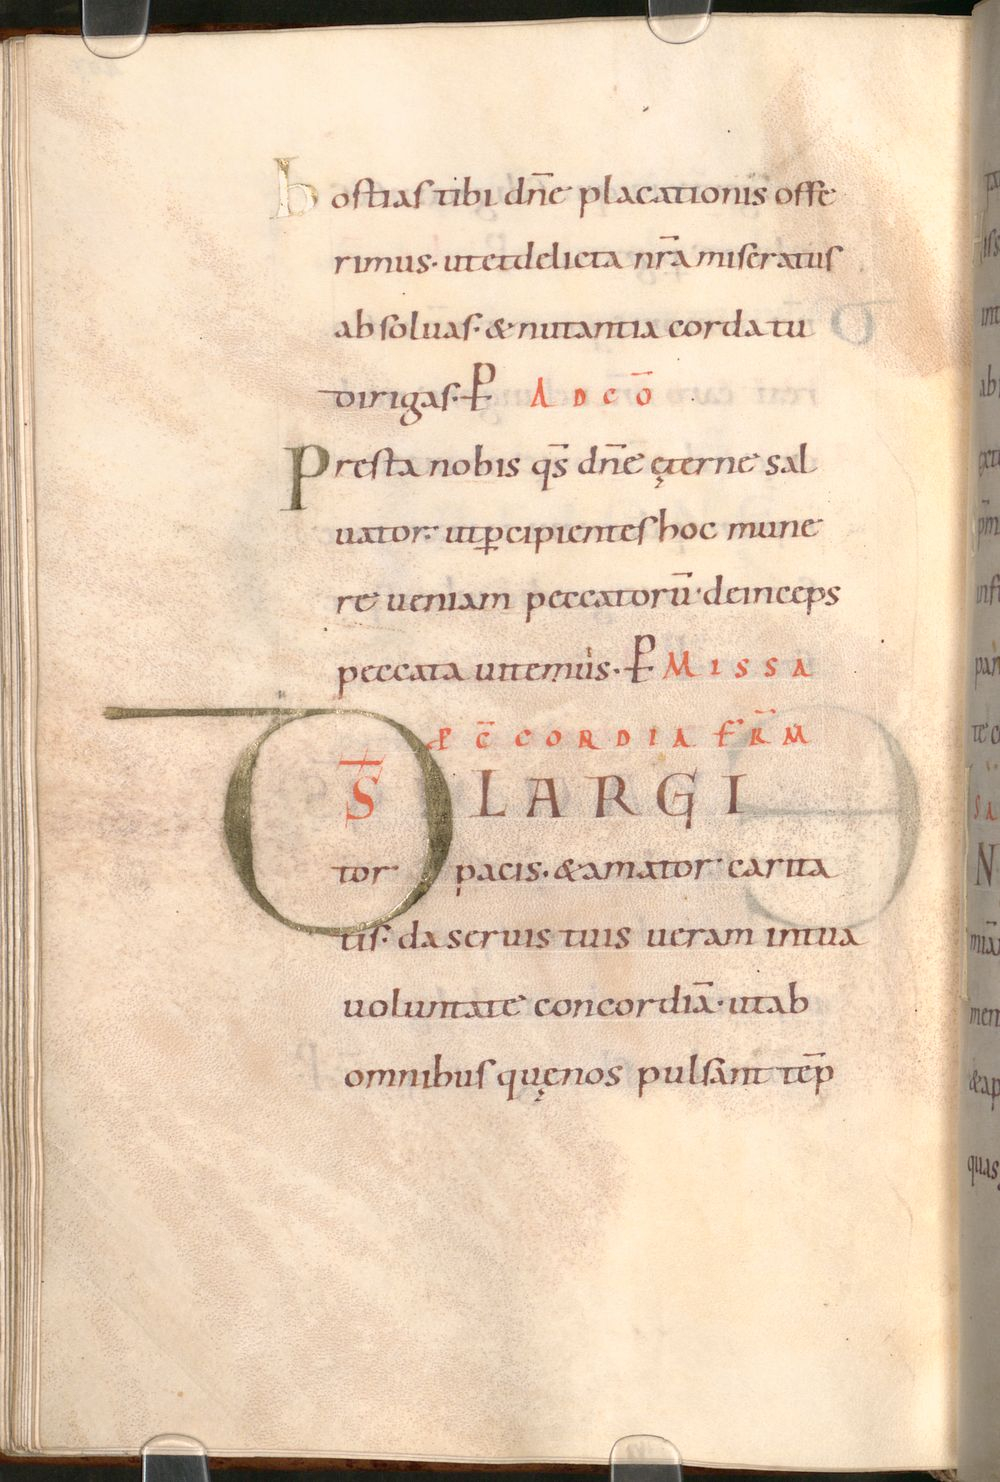 hostias tibi dn̄e placationis offe
rimus· ut et delicta nr̄a miseratus
absoluas· & nutantia corda tu
dirigas· P AD CŌ
Presta nobis qs̄ dn̄e ęterne sal
uator· ut ꝑcipientes hoc mune
re ueniam peccatorū· deinceps
peccata uitemus· P MISSA
C̄CORDIA FR̄M
D̄S LARGI
tor pacis· & amator carita
tis· da seruis tuis ueram in tua
uoluntate concordiā· ut ab
omnibus quę nos pulsant tēp